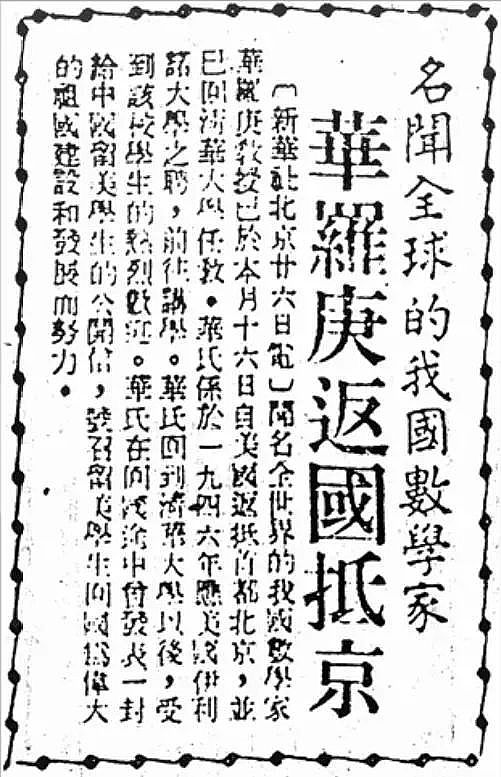 名聞全球的我國數學家
華羅庚返國抵京
〔新華社北京廿六日電〕聞名全世界的我國數學家
華羅庚教授已於本月十六日自美國返抵首都北京，並
已回清華大學任教。華氏係於一九四六年應美國伊利
諾大學之聘，前往講學。華氏回到清華大學以後，受
到該校學生的熱烈歡迎。華氏在回國途中曾發表一封
給中國留美學生的公開信，號召留美學生回國為偉大
的祖國建設和發展而努力。